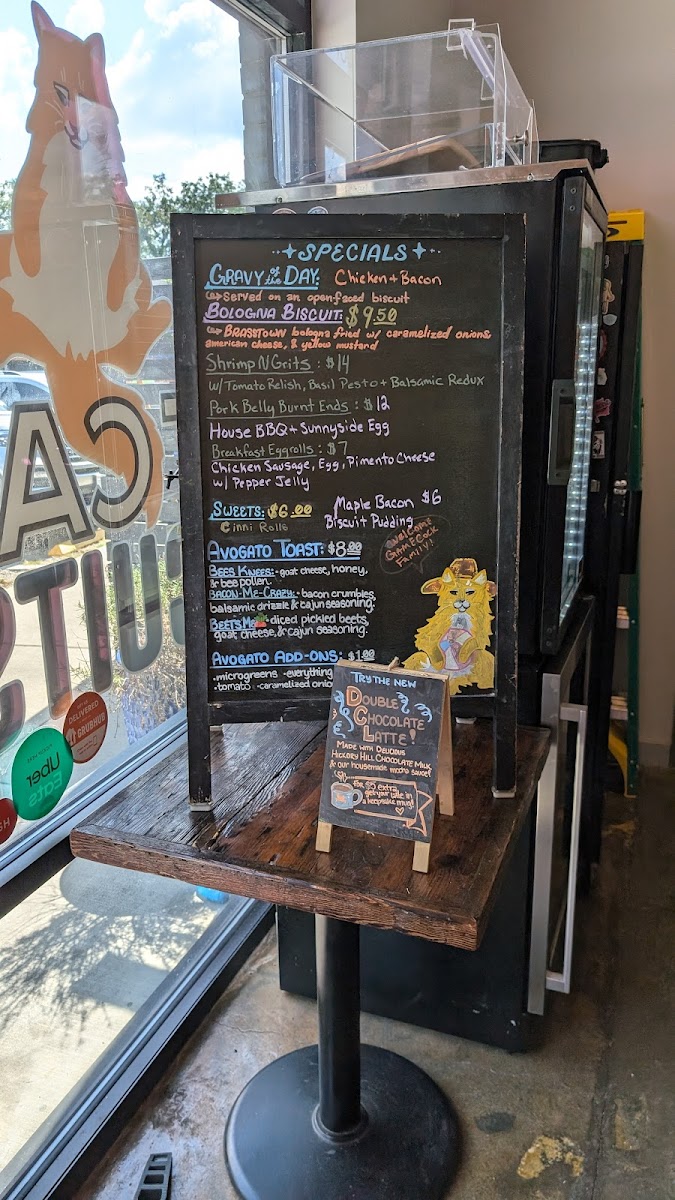 SPECIALS
GRAVY of the DAY: Chicken + Bacon
Served on an open-faced biscuit
BOLOGNA BISCUIT: $9.50
BRASSTOWN bologna fried w/ caramelized onions,
american cheese, & yellow mustard
Shrimp N Grits : $14
w/ Tomato Relish, Basil Pesto + Balsamic Redux
Pork Belly Burnt Ends : $12
House BBQ + Sunnyside Egg
Breakfast Eggrolls : $7
Chicken Sausage, Egg, Pimento Cheese
w/ Pepper Jelly
SWEETS: $6.00
Cinni Rolls
Maple Bacon $6
Biscuit Pudding
Welcome
GAMECOCK
Family!
AVOGATO TOAST: $8.00
BEES KNEES: - goat cheese, honey,
& bee pollen.
BACON-ME-CRAZY: - bacon crumbles,
balsamic drizzle & cajun seasoning.
BEETS ME - diced pickled beets,
goat cheese, & cajun seasoning.
AVOGATO ADD-ONS: $1.00
.microgreens -everything
.tomato -caramelized onio
TRY THE NEW
DOUBLE
CHOCOLATE
LATTE!
MADE WITH DELICIOUS
HICKORY HILL CHOCOLATE MILK
& our housemade mocha sauce!
for $5 extra
get your latte in
a keepsake mug!
CA
UITS
DELIVERED
GRUBHUB
Uber
Eats